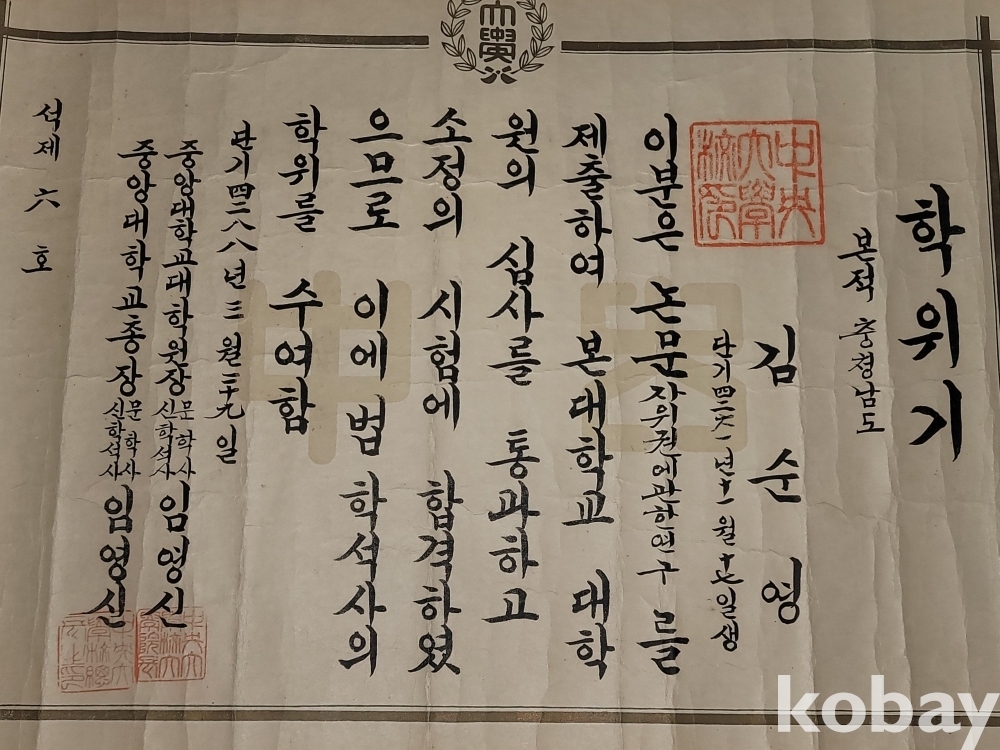 大學
학위기
본적 충청남도
中央大學校印
김순영
단기四二六一년十一월十七일생
이분은 논문 자위권에관한연구를
제출하여 본대학교 대학
원의 심사를 통과하고
소정의 시험에 합격하였
으므로 이에 법학석사의
학위를 수여함
단기四二八八년三월二十九일
중앙대학교대학원장 문학사 신학석사 임영신
중앙대학교총장 문학사 신학석사 임영신
석제六호
kobay